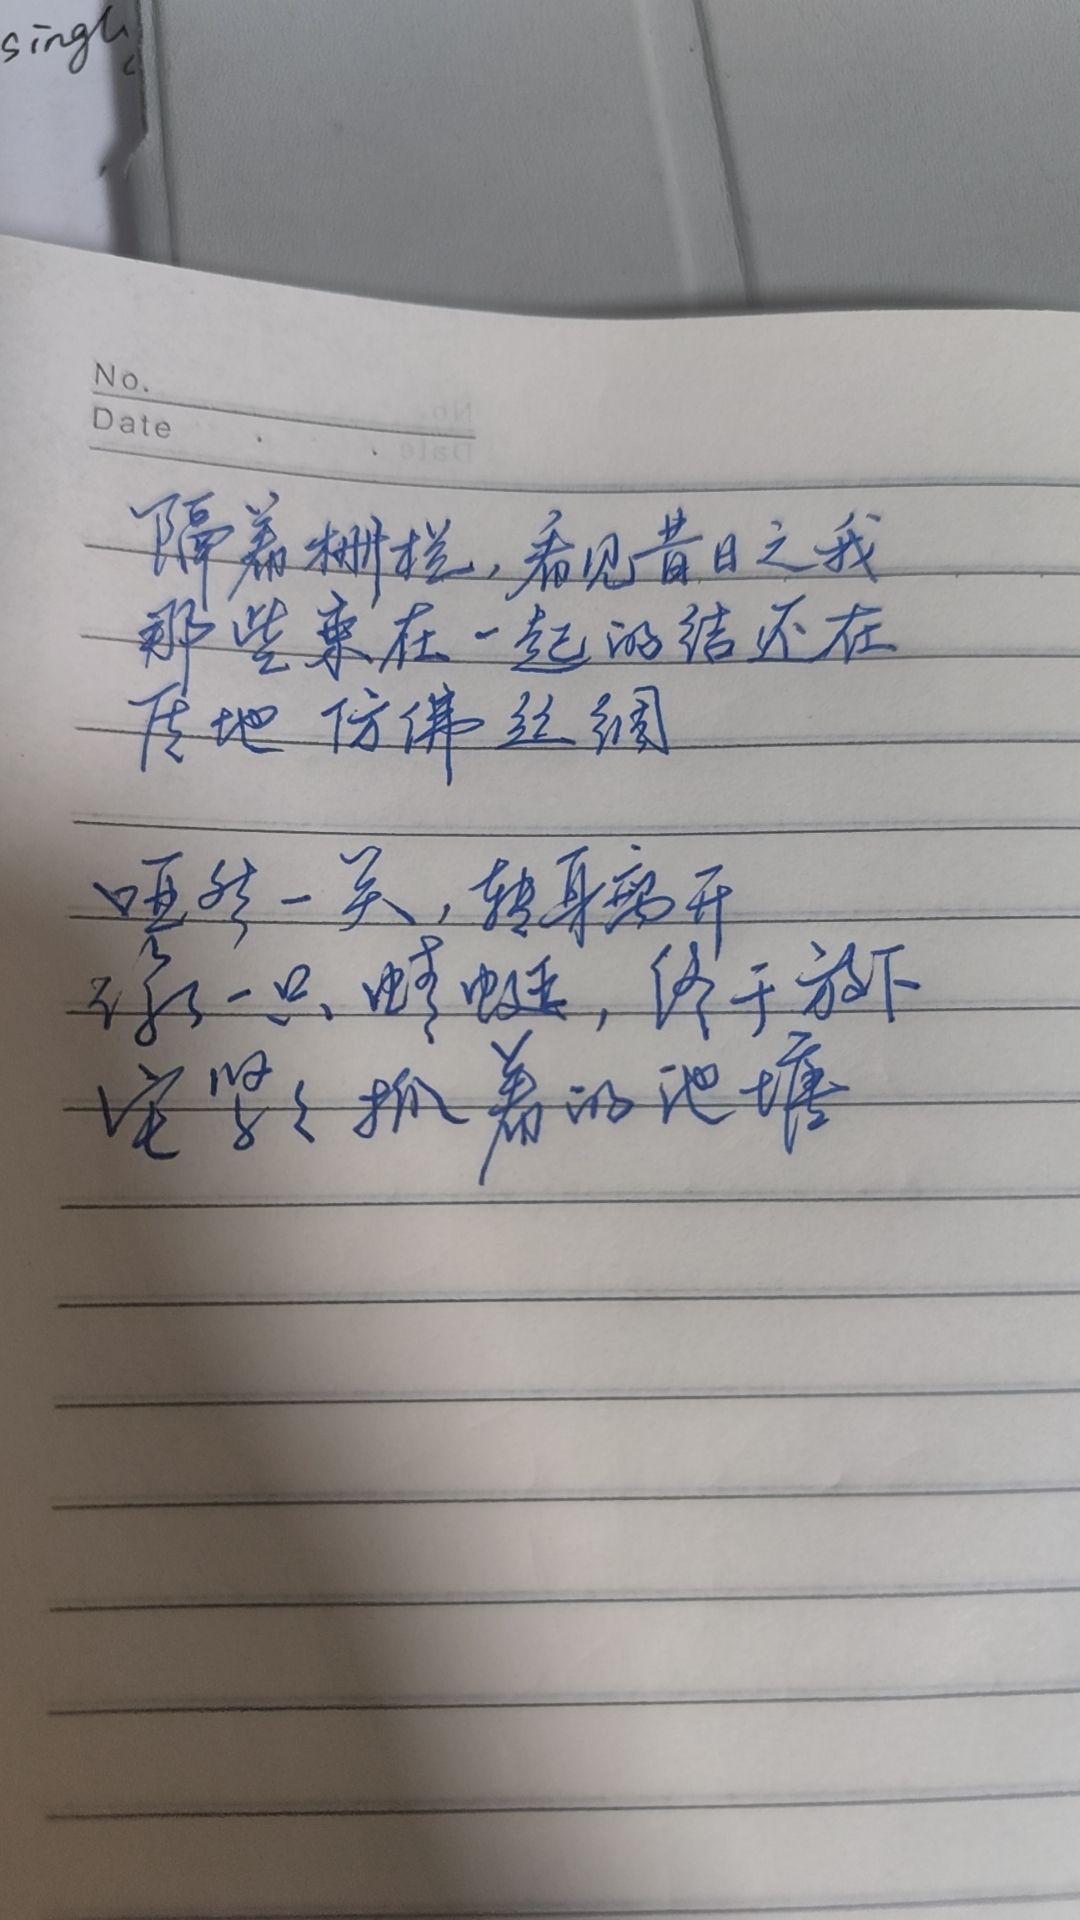 singl
No.
Date
隔着栅栏，看见昔日之我
那些束在一起的结还在
质地仿佛丝绸
哑然一笑，转身离开
像一只蜻蜓，终于放下
它紧紧抓着的池塘